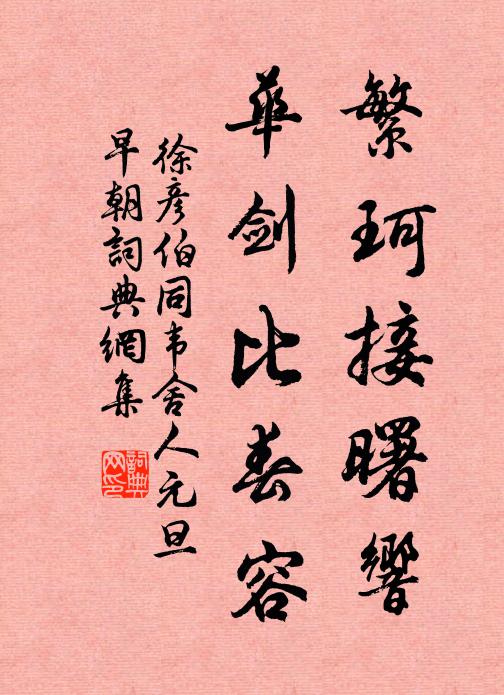 繁珂接曙響
華劍比春容
徐彥伯同韦舍人元旦
早朝詞典網集
詞典网印